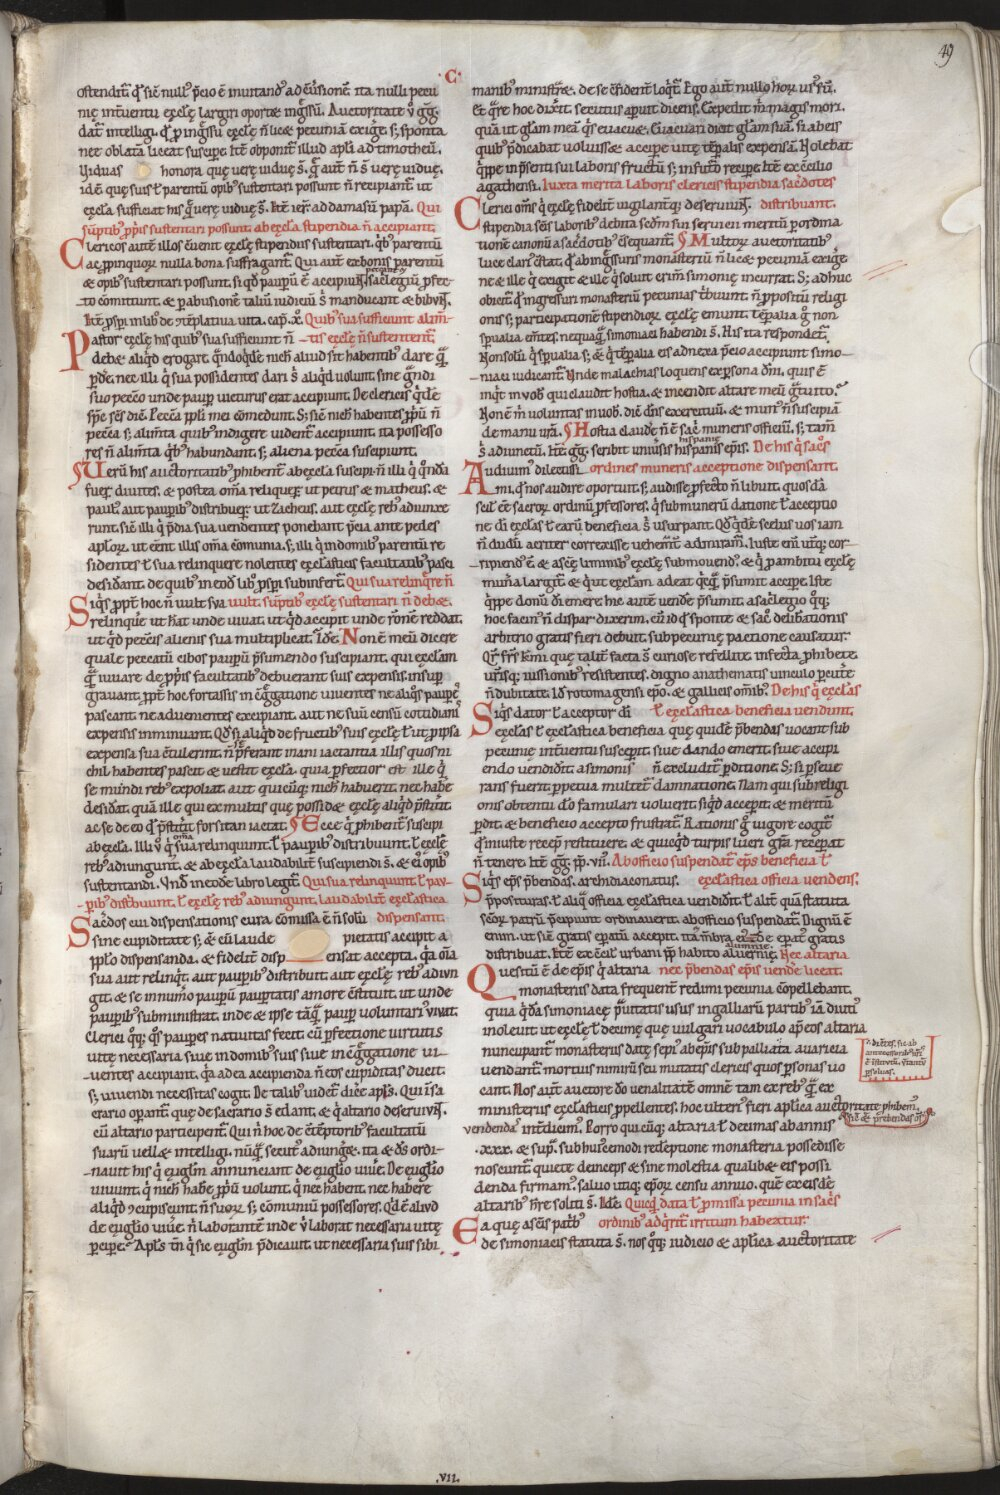 49
C
ostendit͛ qđ sic̄ null᷒ p̄cio ē inuitand᷒ ad c̄u̓sionē. ita nulli pecu
nię int̓uentu ęcc̄lę largiri oportꝫ ing̓ssū. Auctoritate v̓ gg̃.
dat͛ intelligi. qđ ꝓ ingressu ęcc̄lę n̄ licꝫ pecuniā exig̓e. sꝫ sponta
nec oblata liceat suscip̓e. Itē obponit͛ illud apl̓i ad timotheū.
Viduas honora quę uerę uiduę s̄. Q̄ aut̄ n̄ s̄ uerę uiduę.
idē quę suis ł parentū opib᷒ sustentari possunt n̄ recipiant͛ ut
ęcc̄la sufficiat his q̄ uerę uiduę s̄. Itē ier̄ ad damasū papā. Qui
sūptib᷒ ꝓp̓is sustentari possunt ab ęcc̄la stipendia n̄ accipiant.
Clericos autē illos c̄uenit ęcc̄lę stipendiis sustentari. qb᷒ parentū
ac ꝓpinquoꝝ nulla bona suffragant͛. Qui aut̄ ex bonis parentū
⁊ opib᷒ sustentari possunt. si qđ paup̓ū ē accipiunt. sac̓legiū ꝓfec
to c̄mittunt. ⁊ ꝑ abusionē taliū iudiciū s̓ manducant ⁊ bibunt.
Itē ꝓsꝑ in lib᷒ de c̄tēplatiua uita. cap̄. x̊. Quib᷒ sua sufficiunt alim̄
Pastor ęcc̄lę his quib᷒ sua sufficiunt n̄ tis ęcc̄lę n̄ sustentent͛.
debꝫ aliqđ erogare. q̄ndoq̓dē nich̓ aliud sit habentib᷒ dare q̄
p̓dē. nec illi q̓ sua possidentes dari s̓ aliqđ uolunt. sine g̃ndi
suo pecc̄o unde paup̓ uicturus erat accipiunt. De clericis q̓dē
sp̄c sc̄s dic̄. Pecc̄a ppl̓i mei com̄edunt. Sꝫ sic̄ nich̓ habentes ꝓp̓ū n̄
pecc̄a sꝫ alim̄ta quib᷒ indigere uident͛ accipiunt. ita possesso
res n̄ alim̄ta qb᷒ habundant. sꝫ aliena pecc̄a suscipiunt.
Verū his auctoritatib᷒ ꝓhibent͛ ab ęcc̄la suscipi. n̄ illi q̓ q̊nda
fuer̄ diuites. ⁊ postea om̄ia reliquer̄ ut petrus ⁊ matheus. ⁊
paul᷒. aut paup̓ib᷒ distribuer̄ ut Zacheus. aut ęcc̄lę reb᷒ adiunxe
runt. sic̄ illi q̓ p̄dia sua uendentes ponebant p̄cia ante pedes
apl̓oꝝ. ut eēnt illis om̄ia cōmunia. sꝫ illi q̓ in domib᷒ parentū re
sidentes ł sua relinquere nolentes ęcc̄lasticis facultatib᷒ pasci
desid̓ant. de quib᷒ in eod̄ lib᷒ ꝓsꝑ subinfert͛. Qui sua relinq̓re n̄
Siq̓s ꝓpt̓ hoc n̄ uult sua uult. sūptib᷒ ęcc̄lę sustentari n̄ debꝫ.
relinquic ut habeat unde uiuat. ut qđ accipit unde rōnē reddat.
ut qđ pecc̄is alienis sua multiplicat. Idē. Non ē meū dicere
quale peccatū cibos paup̓ū p̄sumendo suscipiant. qui ęcc̄lam
q̄ iuuare de ꝓp̓is facultatib᷒ debuerant suis expensis. insup̓
g̓uant. ꝓpt̓ hoc fortassis in cg̓gatione uiuentes ne aliq̓s paup̓es
pascant. ne aduenientes excipiant. aut ne suū censū cotidianis
expensis imminuant. Qđ si aliqđ de fructib᷒ suis ęcc̄lę ł ut ꝓ ipsa
expensa sua c̄tulerint. n̄ p̓ferant inani iactantia illis quos ni
chil habentes pascit ⁊ uestit ęcc̄la. quia ꝑfectior est ille q̓
se mundi reb᷒ expoliat. aut quicūq; nich̓ habuerit. nec habe
desid̓at. quā ille qui ex multis quę possidꝫ ęcc̄lę aliqđ p̓stiꝉit.
ac se de eo qđ p̓stitit forsitan iactat. Ecce q̓ ꝓhibent͛ suscipi
ab ęcc̄la. Illi v̓ q̓ sua relinquunt. ł paup̓ib᷒ distribuunt. ł ęcc̄lę
reb᷒ adiungunt. ⁊ ab ęcc̄la laudabilit̓ suscipiendi s̄. ⁊ ei᷒ opib᷒
sustentandi. Vn̄ in eodē libro legit͛. Qui sua relinquunt. ł pau
ꝑib᷒ distribuunt. ł ęcc̄lę reb᷒ adiungunt. laudabilit̓ ęcc̄lastica
Sac̓dos cui dispensationis cura cōmissa ē n̄ solū dispensant.
sine cupiditate sꝫ ⁊ cū laude pietatis accipit a
ppl̓o dispensanda. ⁊ fidelit̓ disp ensat accepta. q̓a om̄ia
sua aut relinq̓t. aut paup̓ib᷒ distribuit. aut ęcc̄lę reb᷒ adiun
git. ⁊ se in num̓o paup̓ū paup̓tatis amore c̄stituit. ut unde
paup̓ib᷒ subministrat. inde ⁊ ipse tāq̄ paup̓ uoluntari᷒ uiuat.
Clerici q̊q; q̓s paup̓es natiuitas fecit. cū ꝑfectione uirtutis
uitę necessaria siue in domib᷒ suis siue in cg̓gatione ui
uentes accipiant. q̓a ad ea accipienda n̄ eos cupiditas ducit.
sꝫ uiuendi necessitas cogit. De talib᷒ uidet͛ dic̓e apl̓s. Qui ī sa
crario op̓ant͛. quę de sacrario s̄ edant. ⁊ q̓ altario deseruiunt.
cū altario participent͛. Qui n̄ hoc de c̄tēptorib᷒ facultatū
suarū uellꝫ intelligi. nūq̄ secut᷒ adiung̓ꝫ. ita ⁊ dn̄s ordi
nauit his q̓ euglm̄ annunciant de euglio uiu̓e. De euglio
uiuunt. q̓ nich̓ habe ꝓp̓ū uolunt. q̓ nec habent. nec habere
aliqđ ɔcupiscunt. n̄ suoꝝ sꝫ cōmuniū possessores. Qđ ē aliud
de euglio uiu̓e. n̄ laborantē inde v̓ laborat necessaria uitę
p̓cip̓e. Apl̓s tn̄ q̓ sic euglm̄ p̓dicauit. ut necessaria suis sibi
manib᷒ ministr̄et. de se c̄fident̓ loq̓t͛. Ego aut̄ nullo hoꝝ us᷒ sū.
Et q̓re hoc dix̓it. secutus apuit dicens. Expedit m̄ magis mori.
quā ut gl̓am meā q̓s euacuet. Euacuari dicit gl̓am suā. si ab eis
quib᷒ p̓dicabat uoluissꝫ accip̓e uitę tēꝑalis expensā. Nolebat
q̓ppe in p̓senti sui laboris fructū sꝫ in fut᷒o recip̓e. Itē ex c̄cilio
agathensi. Iuxta merita laboris clericis stipendia sac̓dotes
Clerici om̄s q̓ ęcc̄lę fidelit̓ uigilant̓q; deseruiunt. distribuant.
stipendia sc̄is laborib᷒ debita sc̄dm sui seruicii meritū ꝑ ordina
tionē canonū a sac̓dotib᷒ c̄sequant͛. Multoꝝ auctoritatib᷒
luce clari᷒ c̄stat. qđ ab ing̓ssuris monasteriū n̄ licꝫ pecuniā exige
ne ⁊ ille q̓ exigit ⁊ ille q̓ soluit crim̄ simonię incurrat. Sꝫ adhuc
obicit͛ qđ ingressuri monasteriū pecunias t̓buunt. n̄ ꝓpositū religi
onis sꝫ participationē stipendioꝝ ęcc̄lę emunt. tēꝑalia g̊ non
spirualia em̄tes. nequaq̄ simoniaci habendi s̄. His ita respondet͛.
Nonsolū q̓ spirualia sꝫ ⁊ q̓ tēꝑalia eis adnexa p̄cio accipiunt simo
niaci iudicant͛. Vnde malachias loquens ex ꝑsona dn̄i. quis ē
inq̓t in uob᷒ qui claudit hostia. ⁊ incendit altare meū gtuito.
Non ē m̄ uoluntas in uob᷒. dic̄ dn̄s exercituū. ⁊ mun᷒ n̄ suscipiā
de manu ur̄a. Hostia claude n̄ ē sac̓ muneris officiū. sꝫ tam̄
s̓ adiunctū. Itē gg̃. scribit uniu̓sis hispanis ep̄is. De his q̓ sac̓os
Audiuim᷒ dilectissi ordines muneris acceptione dispensant.
mi. qđ nos audire oportuit. sꝫ audisse ꝓfecto n̄ libuit. quosdā
scil̓ ēē sacroꝝ ordinū ꝓfessores. q̓ sub munerū datione ł acceptio
ne dn̄i ęcc̄las ł earū beneficia s̓ usurpant. Qđ q̓dē scelus uos iam
n̄ dudū acrit̓ correxisse uehem̄t̓ admiram͛. Iuste eni utriq; cor
ripiendi ē ⁊ a sc̄ę liminib᷒ ęcc̄lę submouend᷒. ⁊ q̓ ꝑ ambitū ęcc̄lę
mun̓a largit͛ ⁊ q̓ ut ęcc̄lam adeat q̓cq̄ p̓sumit accip̓e. Iste
q̓ppe donū dei emere. hic autē uend̓e p̓sumit. a sac̓legio q̊q;
hoc facin᷒ n̄ dispar dixerim. cū id qđ sponte ⁊ sac̓o delibationis
arbitrio gratis fieri debuit. sub pecunię pactione causatur.
Qr̄ fr̄s kmi quę talit̓ facta s̄ curiose refellite. infecta ꝓhibete.
ur̄isq; iussionib᷒ resistentes. digno anathematis uinculo ꝑcut̓e
n̄ dubitate. Id̄ rotomagensi ep̄o. ⁊ gallicis om̄ib᷒. De his q̓ ęcc̄las
Siq̓s dator ł acceptor dn̄i ł ęcc̄lastica beneficia uendunt.
ęcc̄las ł ęcc̄lastica beneficia quę quidē p̄bendas uocant sub
pecunię int̓uentu susceꝑit. siue dando emerit. siue accipi
endo uendid̓it. a simonis n̄ excludit͛ ꝑditione. Sꝫ si ꝑseue
rans fuerit. ꝑpetua multet͛ damnatione. Nam qui sub religi
onis obtentu dō famulari uoluerit. siqđ acceꝑit. ⁊ meritū
ꝑdit. ⁊ beneficio accepto frustrat͛. Rationis g̊ uigore cogit͛
q̓ iniuste recep̄ restitue. ⁊ quicqđ turpis luc̓i gr̄a recep̓at
n̄ tenere. Itē gg̃. pp̄. vii. Ab officio suspendat͛ ep̄s beneficia ł
Siq̓s ep̄s p̄bendas. archidiaconatus. ęcc̄lastica officia uendens.
p̄posituras. ł aliq̓ officia ęcc̄lastica uendid̓it. ł alit̓ quā statuta
sc̄oꝝ patrū p̄cipiunt ordinauerit. ab officio suspendat͛. Dignū ē
enim. ut sic̄ gratis ep̄atū accepit. ita mēbra ei᷒dē ep̄at᷒ gratis
distribuat. Itē ex c̄cil̓ urbani pp̄ habito aluernię. Nec altaria
Questū ē de ep̄is q̓ altaria nec p̄bendas ep̄is uend̓e liceat.
monasteriis data frequent̓ redimi pecunia cōpellebant.
quia q̓dā simoniacę p̓uitatis usus in galliarū partib᷒ iā diuti᷒
inoleuit. ut ęcc̄lę ł decimę quę uulgari uocabulo ap̄ eos altaria
nuncupant͛. monasteriis datę sepi᷒ ab ep̄is sub palliata auaricia
uendant͛. mortuis nimirū seu mutatis clericis quos ꝑsonas uo
cant. Nos aut̄ auctore dō uenalitatē omnē tam ex reb᷒ q̄ ex
ministeriis ęcc̄lasticis ꝓpellentes. hoc ult̓i᷒ fieri apl̓ica auctoritate ꝓhibem᷒.
vendenda int̓dicim᷒. Porro quicūq; altaria ł decimas ab annis
.xxx. ⁊ sup̄. sub huiꝰcemodi redēptione monasteria possedisse
noscunt͛. quiete deinceps ⁊ sine molestia qualibꝫ eis possi
denda firmam᷒. saluo utiq; ep̄oꝝ censu annuo. quē ex eisdē
altarib᷒ hr̄e soliti s̄. Idē. Quicq̓d data ł ꝓmissa pecunia in sac̓is
Ea quę a sc̄is patrib᷒ ordinib᷒ adq̓rit͛ irritum habeatur.
de simoniacis statuta s̄. nos q̊q; iudicio ⁊ apl̓ica auctoritate
.VII.